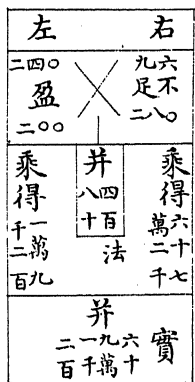 右
九六
不足
二八〇
左
二四〇
盈
二〇〇
乘得六十七
萬二千
并
四百
八十
法
乘得一萬九
千二百
并
六十
九萬
一千
二百
實